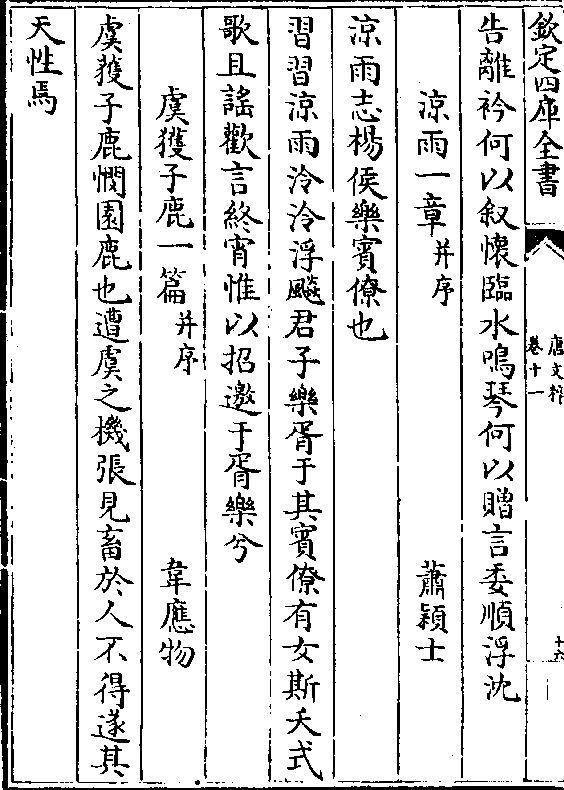 欽定四庫全書
唐文粹
卷十一
十六
告離衿何以叙懷臨水鳴琴何以贈言委順浮沈
涼雨一章并序 蕭穎士
涼雨志楊侯樂賓僚也
習習涼雨泠泠浮飈君子樂胥于其賓僚有女斯夭式
歌且謠歡言終宵惟以招邀于胥樂兮
虞獲子鹿一篇并序 韋應物
虞獲子鹿憫園鹿也遭虞之機張見畜於人不得遂其
天性焉